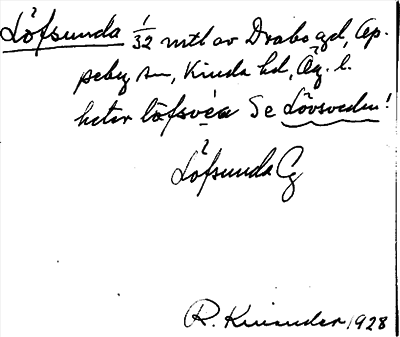 Löfsunda 1/32 mtl av Drabo gd, Op-
peby sn, Kinda hd, Ög. l.
heter löfsvéa Se Lövsveden!
Löfsunda Eg
R. Kinander 1928